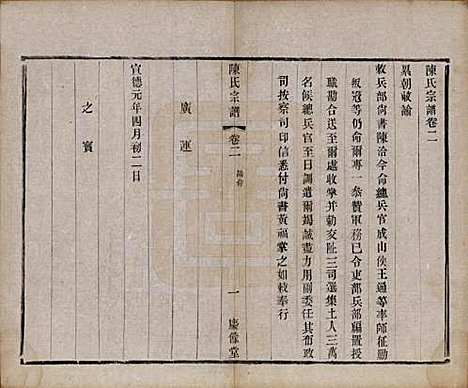 陳氏宗譜卷二
累朝敕諭
敕兵部尚書陳洽今命總兵官成山侯王通等率師征勦
叛寇等仍命爾專一參贊軍務已令吏部兵部編置授
職勘合送至爾處收掌并勅交阯三司選集土人三萬
名候總兵官至日調遣爾竭誠盡力用副委任其布政
司按察司印信悉付尚書黃福掌之如敕奉行
陳氏宗譜
卷二
一
慶餘堂
廣運
宣德元年四月初二日
之寶